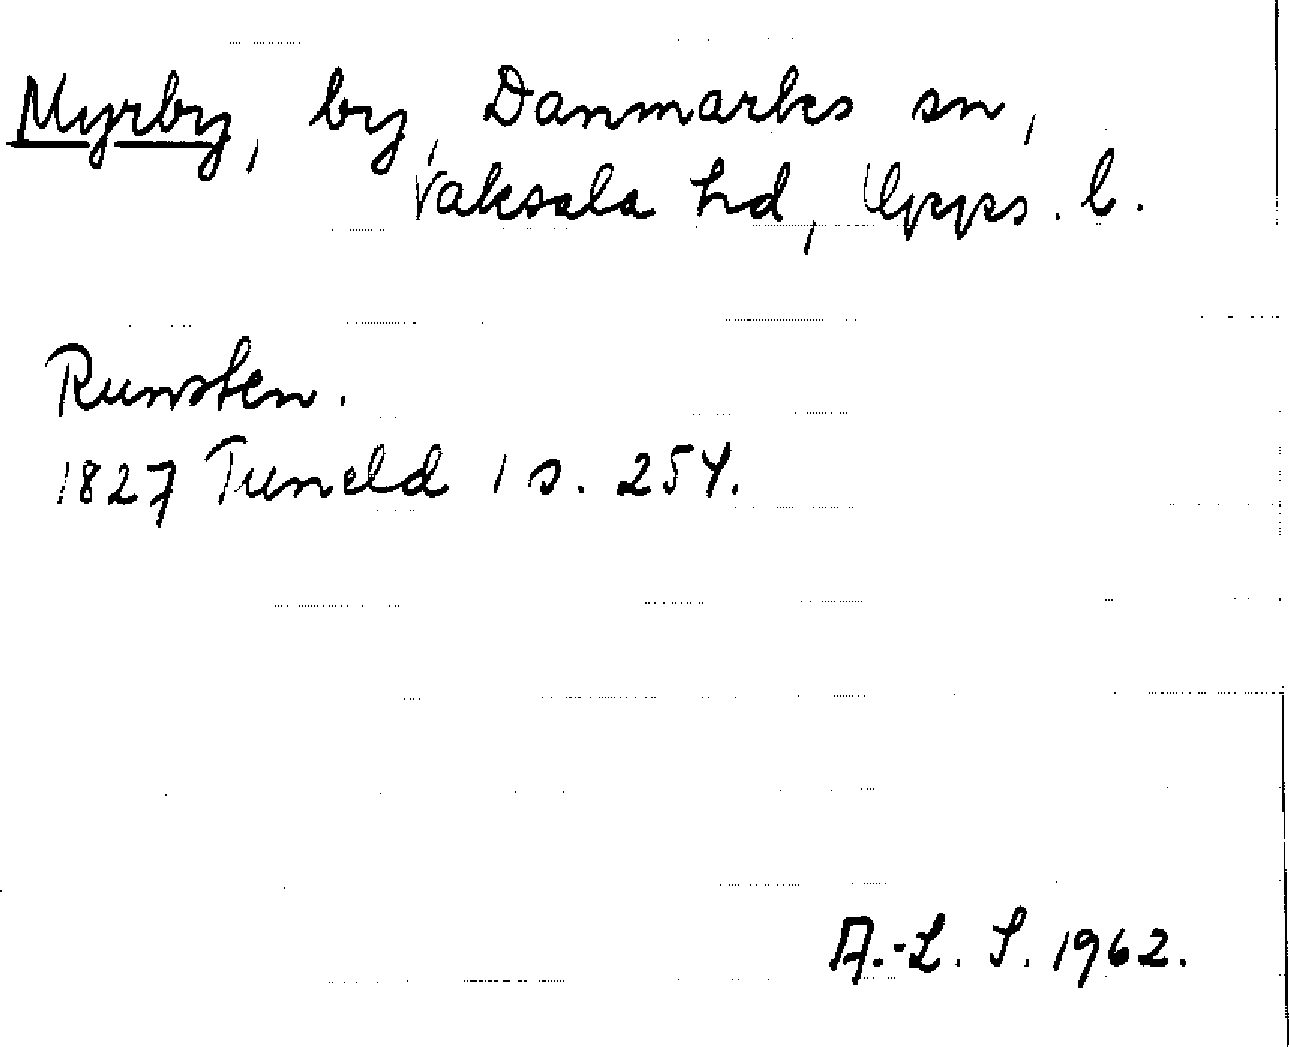 Myrby, by, Danmarks sn,
Vaksala hd, Upps. l.
Runsten.
1827 Tuneld 1 s. 254.
A.-L. S. 1962.